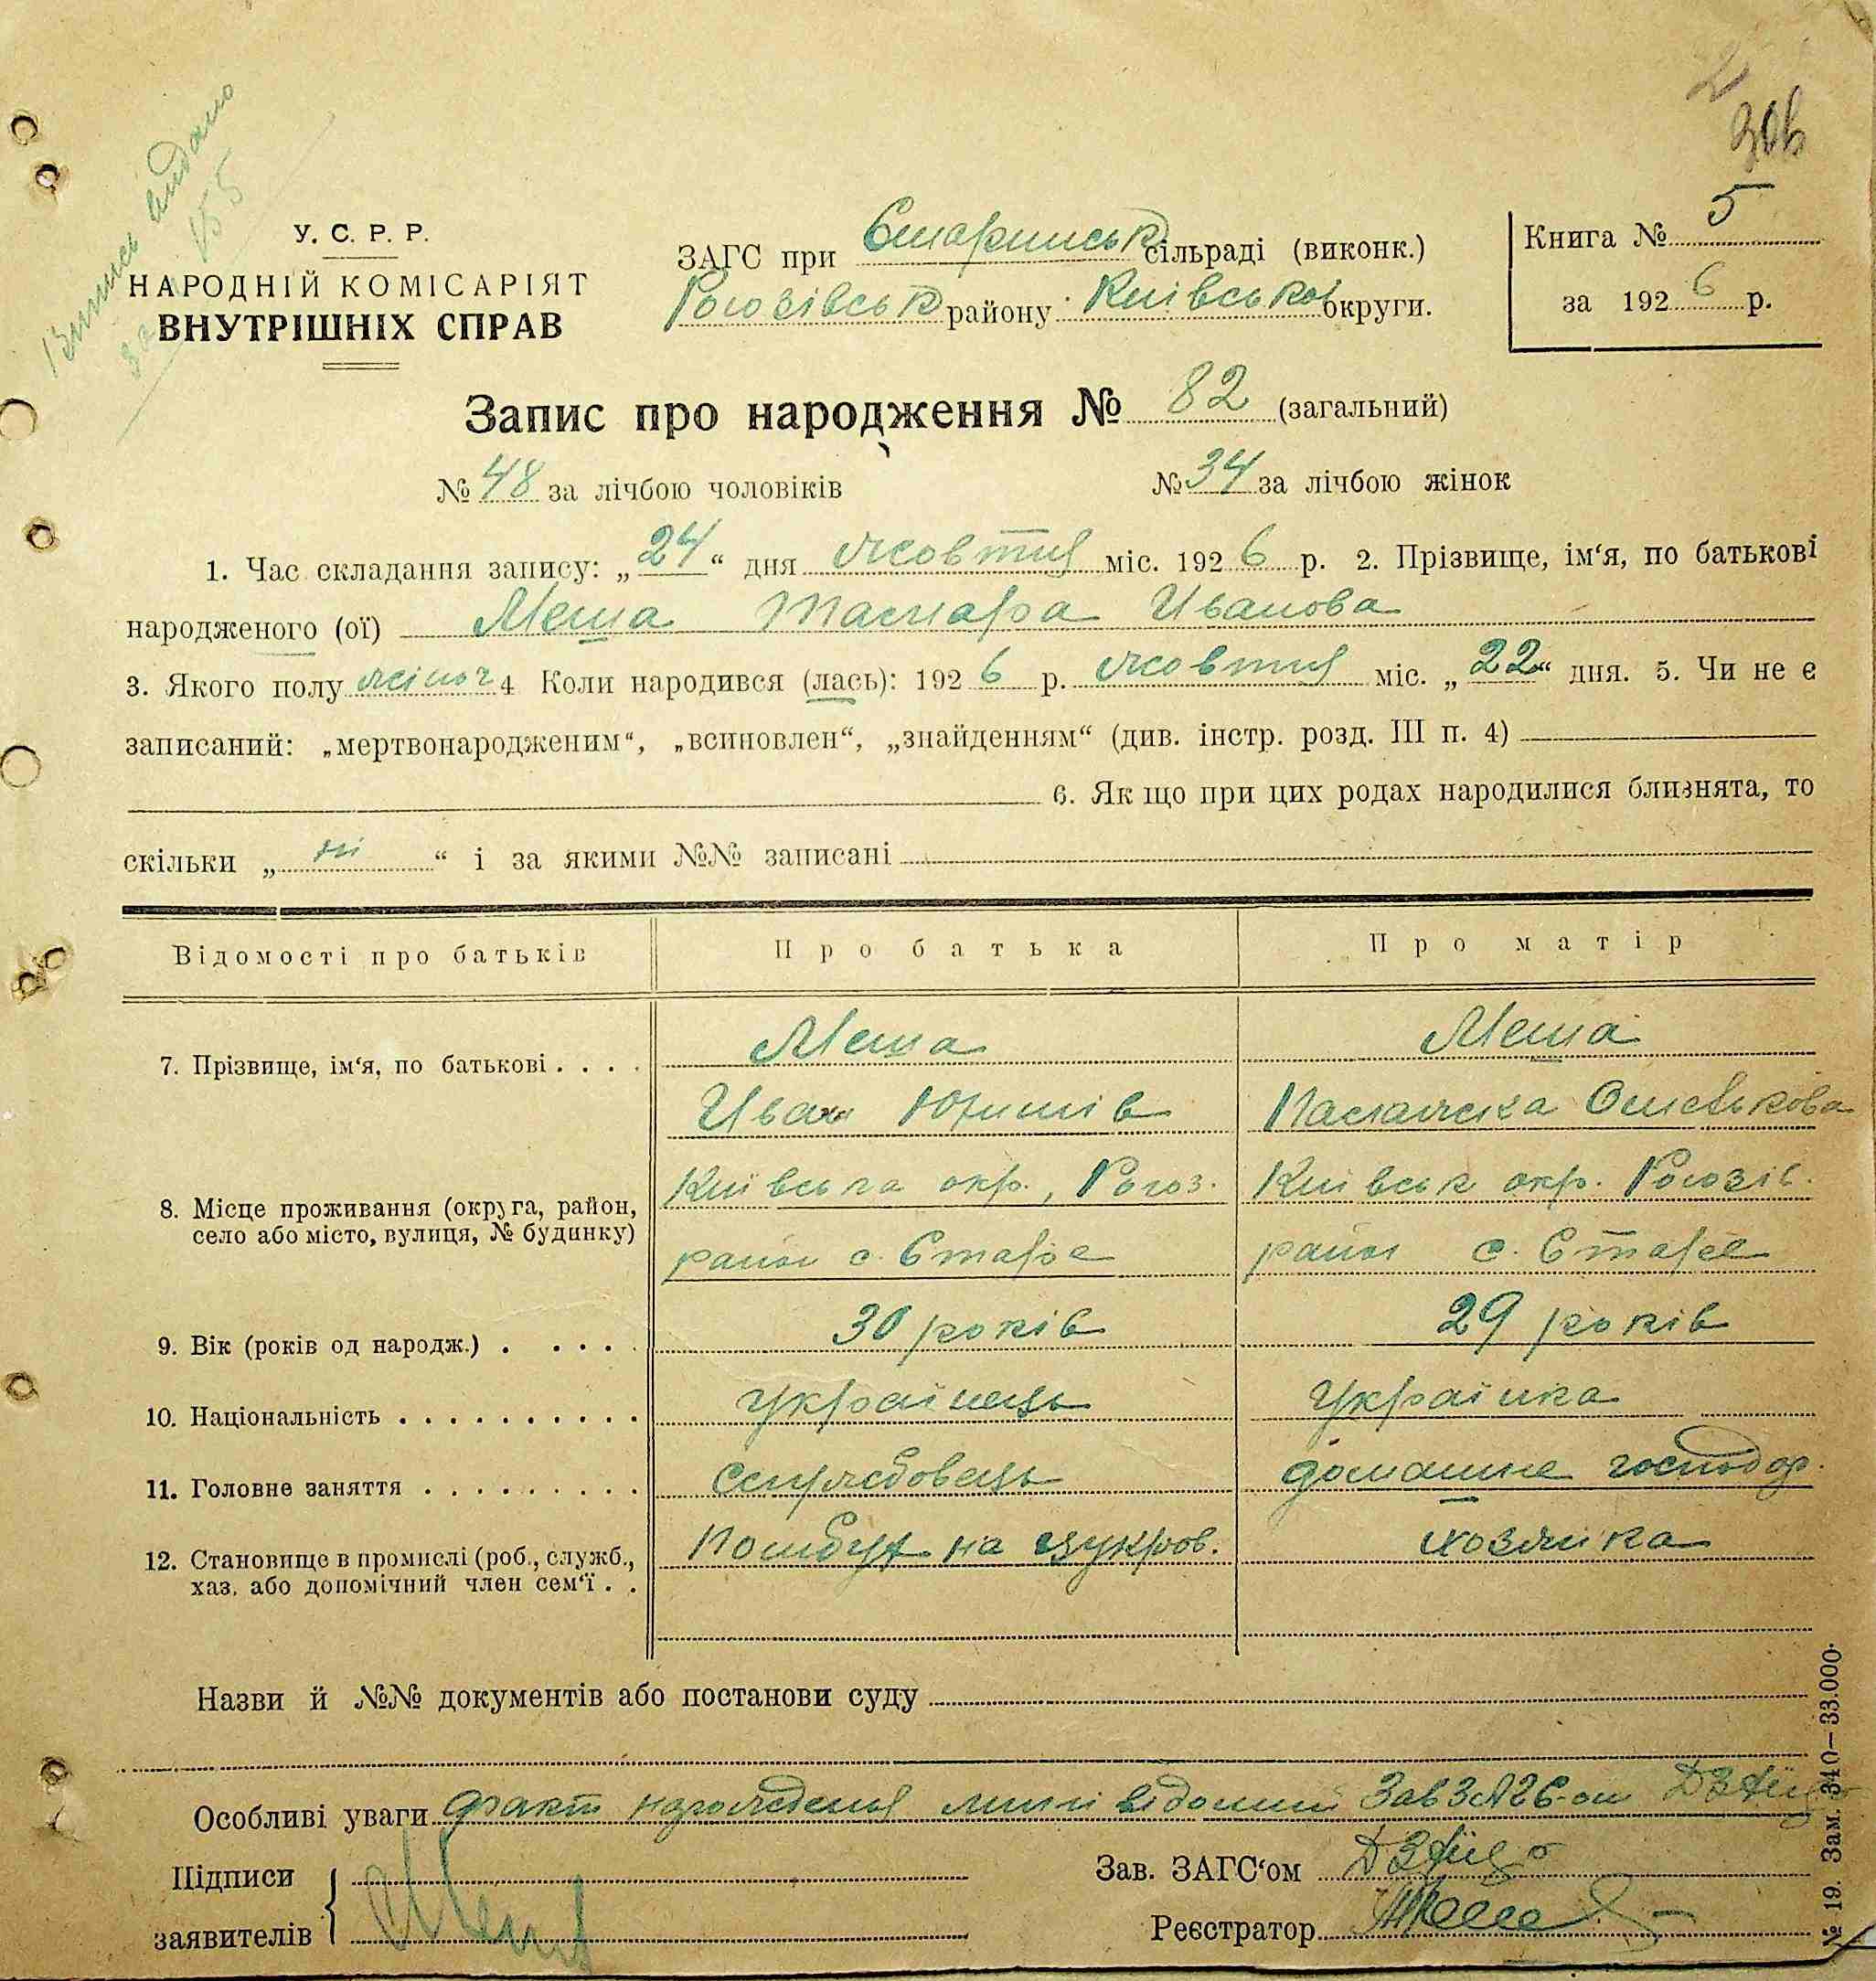 Книга № 5
за 1926 р.
У. С. Р. Р.
НАРОДНІЙ КОМІСАРІЯТ
ВНУТРІШНІХ СПРАВ
ЗАГС при Старинськ сільраді (виконк.)
Рогозівськ району Київської округи.
Запис про народження № 82 (загальний)
№ 48 за лічбою чоловіків № 34 за лічбою жінок
1. Час складання запису: „24“ дня жовтня міс. 1926 р. 2. Прізвище, ім'я, по батькові
народженого (ої) Меша Тамара Иванова
3. Якого полу жіноч 4 Коли народився (лась): 1926 р. жовтня міс. „22“ дня. 5. Чи не є
записаний: „мертвонародженим“, „всиновлен“, „знайденням“ (див. інстр. розд. III п. 4)
6. Як що при цих родах народилися близнята, то
скільки „ні“ і за якими №№ записані
Відомості про батьків Про батька Про матір
7. Прізвище, ім'я, по батькові . . . . Меша Меша
Иван Юхимів Пелажка
8. Місце проживання (округа, район, Київська окр., Рогоз. Київськ окр. Рогозів.
село або місто, вулиця, № будинку) район с. Старе район с. Старе
9. Вік (років од народж.) . . . . . 30 років 29 років
10. Національність . . . . . . . . . . Українець Українка
11. Головне заняття . . . . . . . . . Службовець домашнє господар.
12. Становище в промислі (роб., служб., на цукров. хозяйка
хаз. або допомічний член сем'ї . .
Назви й №№ документів або постанови суду
Особливі уваги факт народження мині відомий
Підписи
заявителів
Зав. ЗАГС'ом
Реєстратор
№ 19. Зам. 340—33.000.